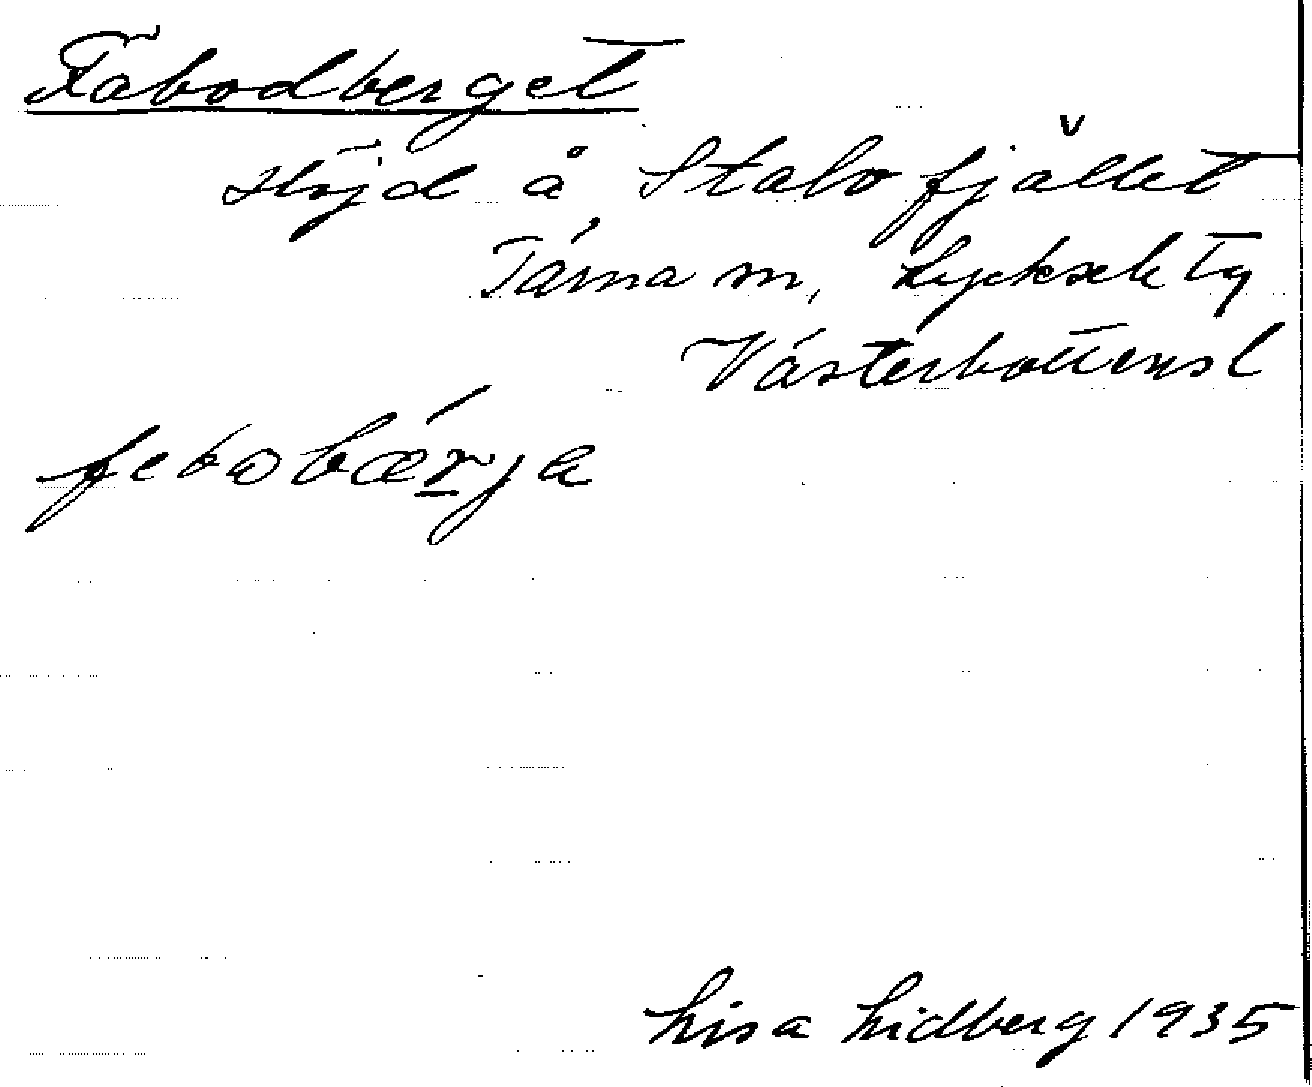 Fäbodberget
Höjd å Stalofjället
Tärna sn, Lycksele tg
Västerbottens l
febobærja
Lisa Lidberg 1935